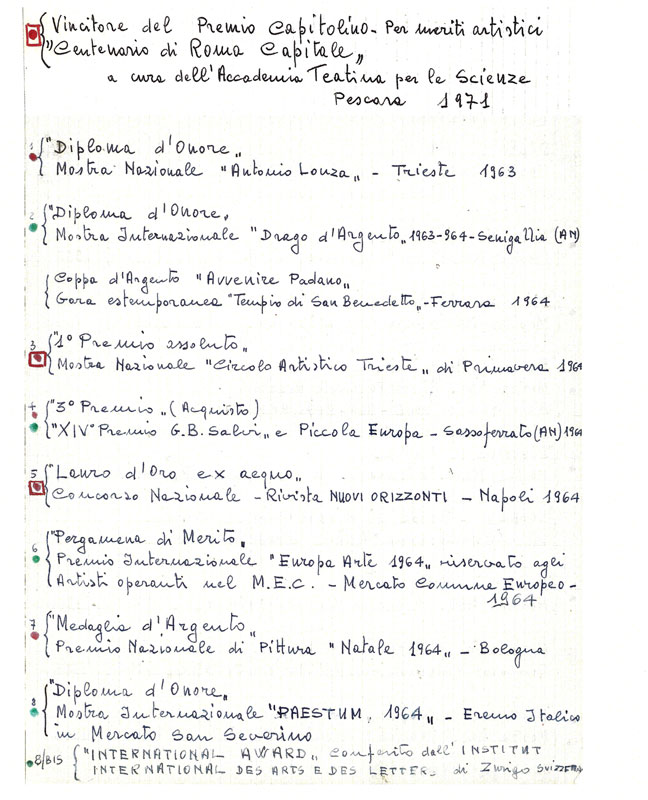 Vincitore del Premio Capitolino - Per meriti artistici
"Centenario di Roma Capitale"
a cura dell'Accademia Teatina per le Scienze
Pescara 1971
1 "Diploma d'Onore"
Mostra Nazionale "Antonio Lonza" - Trieste 1963
2 "Diploma d'Onore"
Mostra Internazionale "Drago d'Argento" 1963-964 - Senigallia (AN)
Coppa d'Argento "Avvenire Padano"
Gara estemporanea "Tempio di San Benedetto" - Ferrara 1964
3 "1° Premio assoluto"
Mostra Nazionale "Circolo Artistico Trieste" di Primavera 1964
4 "3° Premio" (Acquisto)
"XIV° Premio G.B. Salvi" e Piccola Europa - Sassoferrato (AN) 1964
5 "Lauro d'Oro ex aequo"
Concorso Nazionale - Rivista NUOVI ORIZZONTI - Napoli 1964
6 "Pergamena di Merito"
Premio Internazionale "Europa Arte 1964" riservato agli
Artisti operanti nel M.E.C. - Mercato Comune Europeo -
1964
7 "Medaglia d'Argento"
Premio Nazionale di Pittura "Natale 1964" - Bologna
8 "Diploma d'Onore"
Mostra Internazionale "PAESTUM, 1964" - Eremo Italico
in Mercato San Severino
8/BIS "INTERNATIONAL AWARD" conferito dall'INSTITUT
INTERNATIONAL DES ARTS E DES LETTER. di Zurigo SVIZZERA